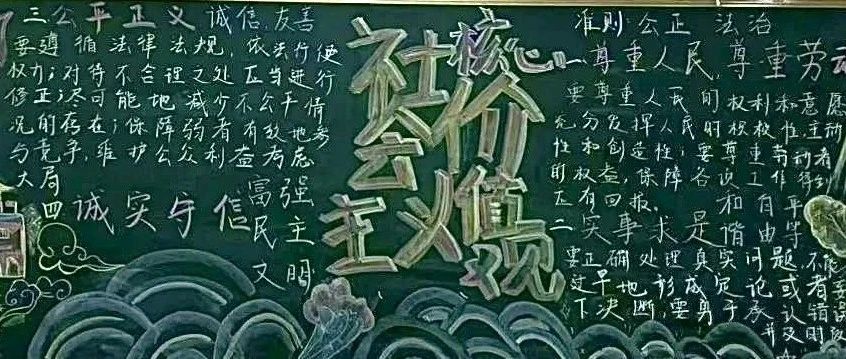 三公平正义 诚信 友善
要遵循法律法规,依法行使
权力;对待不合理之处应当进行
修正;尽可能地减少不公平情
况的存在;保障弱者有效地参
与竞争,维护公众利益考虑
大局
四诚实守信
富强
民主
文明
社会主义
核心价值观
准则:公正 法治
一尊重人民,尊重劳动
要尊重人民的权利和意愿
充分发挥人民的
性和创造性;要尊重劳动者
的权益,保障各
正有回报。
和谐
自由
平等
二实事求是
要正确处理真实问题,不能
过早地形成定论或者
下决断,要勇于承认错误
并及时